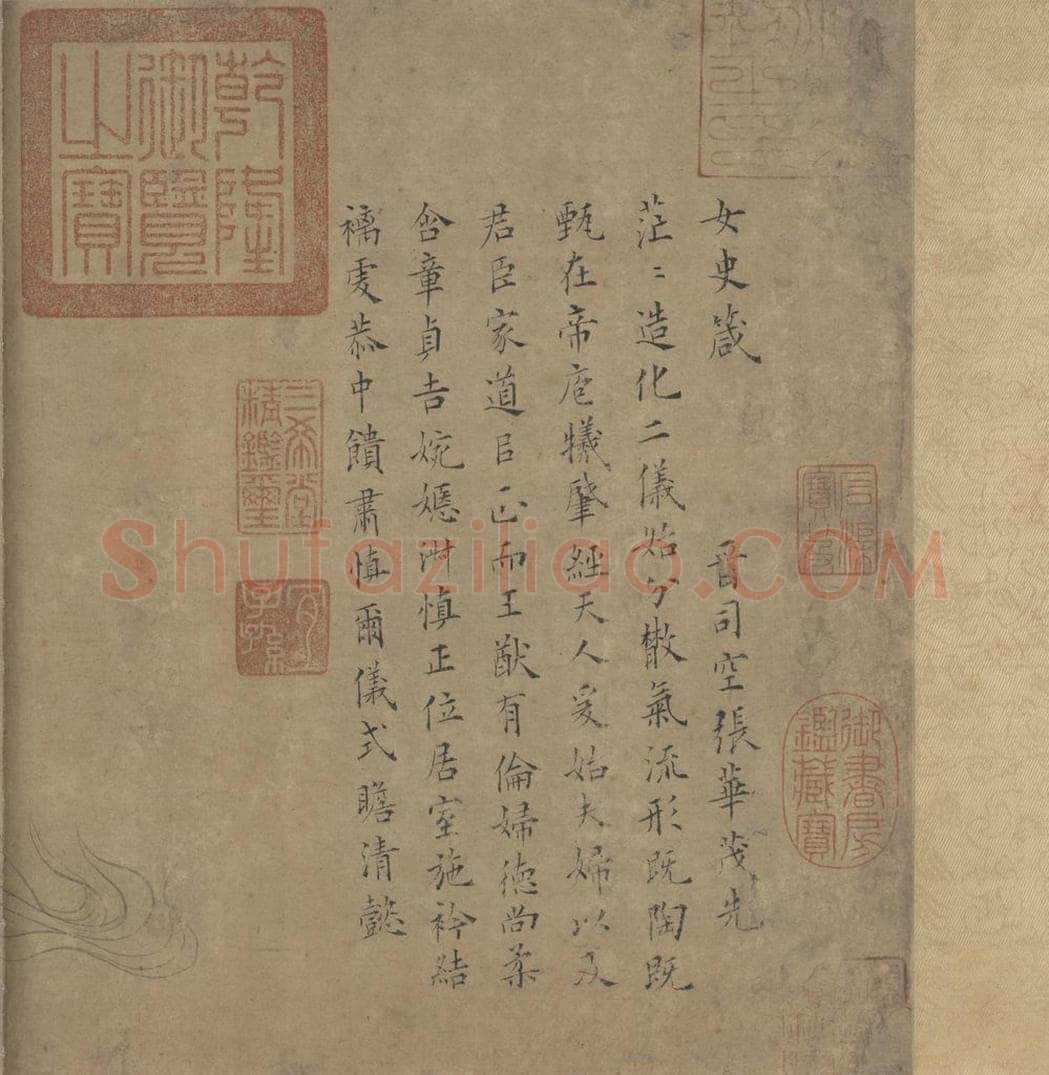 女史箴 晋司空張華茂先
茫〻造化二儀始分散氣流形既陶既
甄在帝庖犧肇經天人爰始夫婦以及
君臣家道以正而王猷有倫婦德尚柔
含章貞吉婉嫕淑慎正位居室施衿結
褵虔恭中饋肅慎爾儀式瞻清懿
乾隆御覽之寶
三希堂精鑑璽
宜子孫
石渠寶笈
御書房鑑藏寶
Shufaziliao.COM